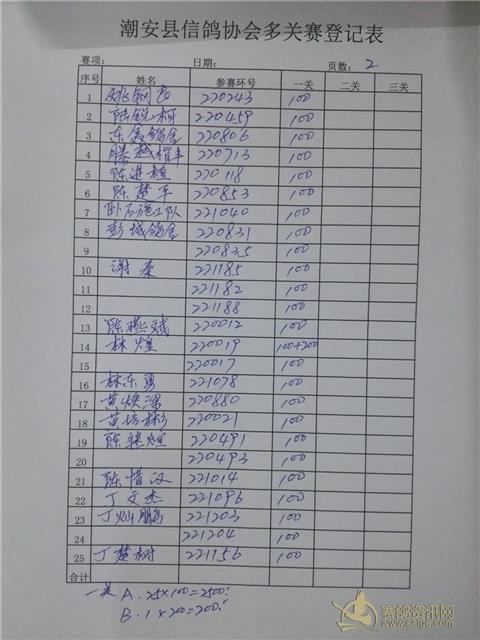 潮安县信鸽协会多关赛登记表
赛项: 日期: 页数: 2
序号 姓名 参赛环号 一关 二关 三关
1 姚钢 220243 100
2 陆锐柯 220459 100
3 东 鸽舍 220806 100
4 腾越 220713 100
5 陈进植 220118 100
6 陈楚平 220853 100
7 卧石施工队 221040 100
8 彭城鸽舍 220831 100
9 220835 100
10 谢泰 221185 100
11 221182 100
12 221188 100
13 陈燕斌 220012 100
14 林煌 220019 100+200
15 220017 100
16 林东勇 221078 100
17 黄焕 220880 100
18 黄培彬 220021 100
19 陈继煊 220491 100
20 220493 100
21 陈惜汉 221014 100
22 丁文杰 221096 100
23 丁灿鹏 221203 100
24 221204 100
25 丁楚树 221156 100
合计
一关 A. 25×100=2500.
B. 1×200=200.
赛鸽资讯网
www.saige.com